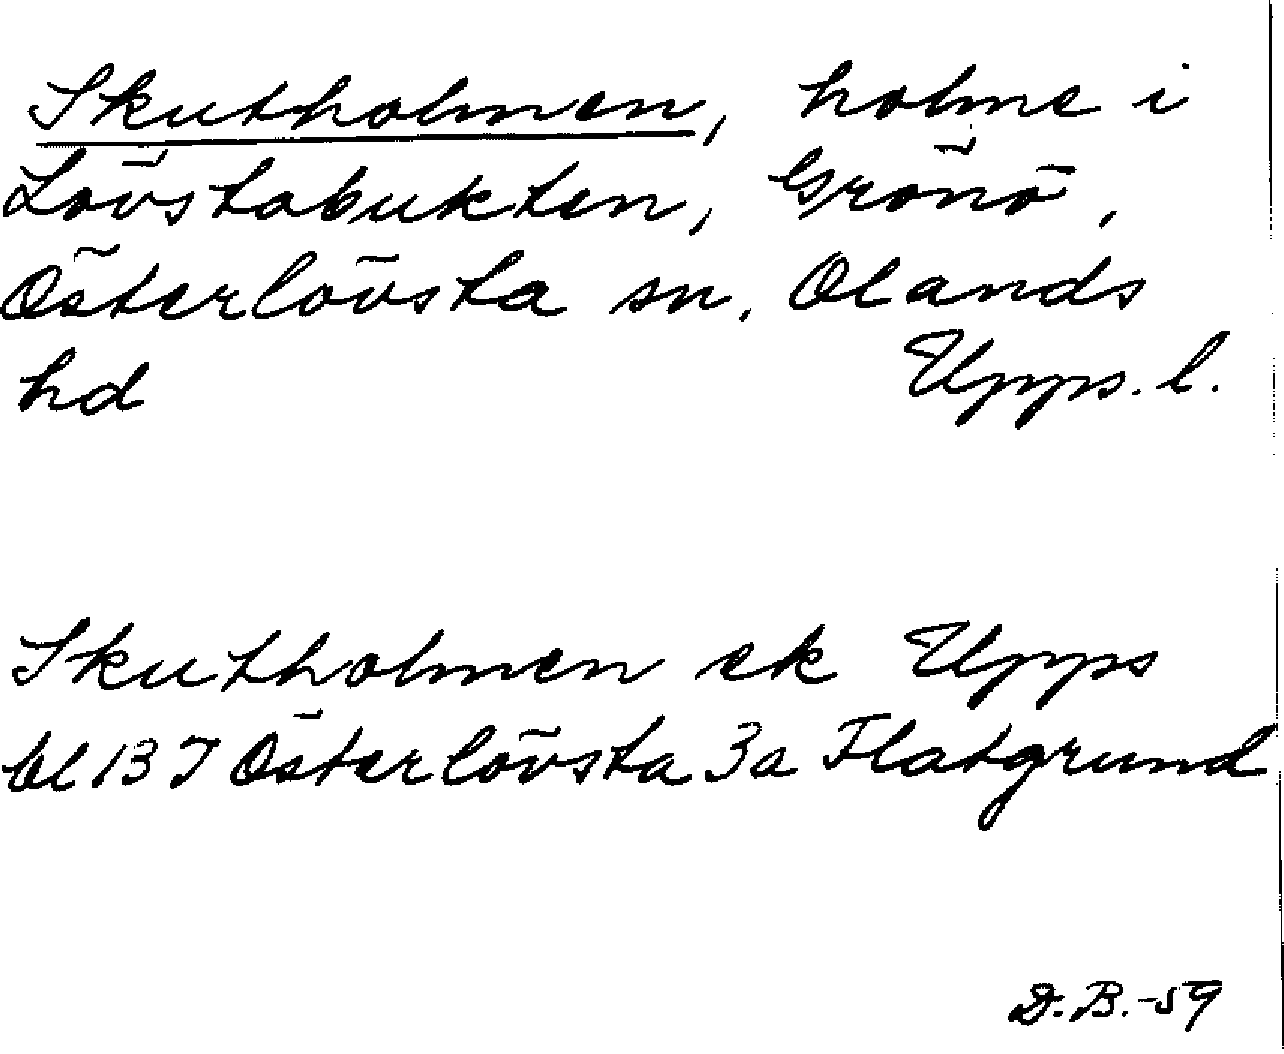 Skutholmen, holme i
Lövstabukten, Grönö,
Österlövsta sn, Olands
hd Upps. l.
Skutholmen ek Upps
bl 13 I Österlövsta 3a Flatgrund
D.B.-59